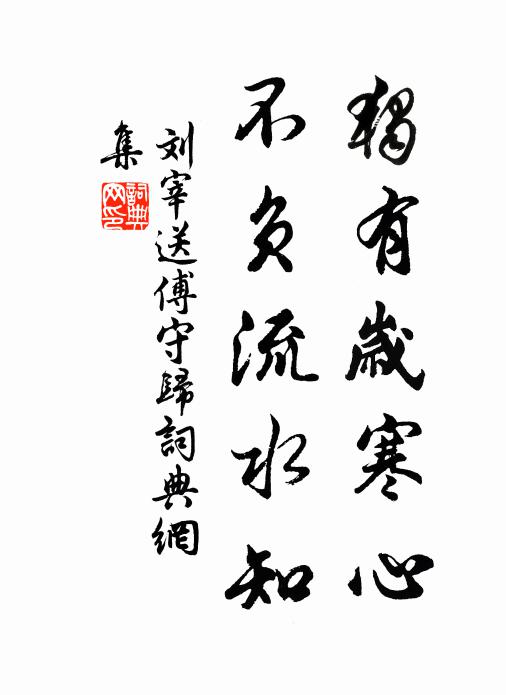 獨有歲寒心
不負流水知
刘宰送傅守歸詞典網
集
詞典
网印